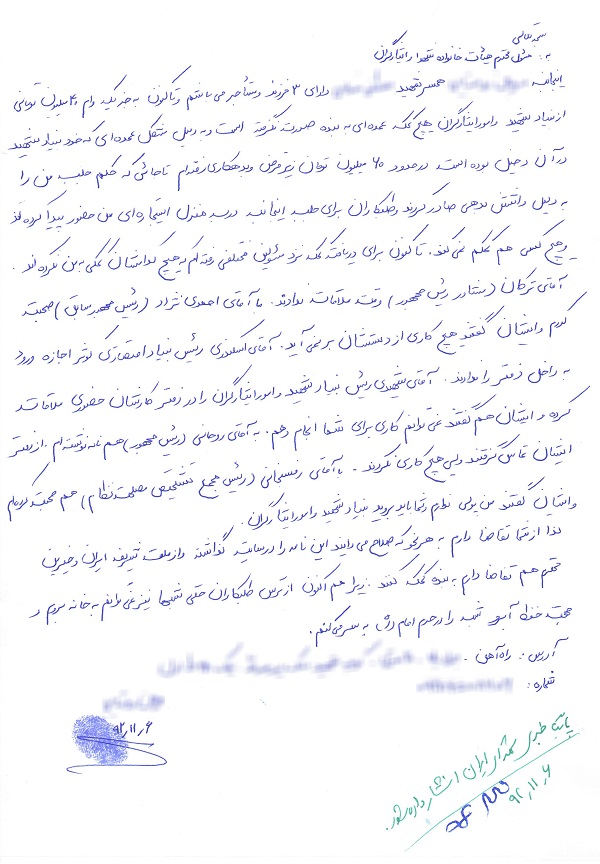 بسمه تعالی
به: مسئول محترم هیأت خانواده شهدا و ایثارگران
اینجانبه همسر شهید دارای ۳ فرزند و مستأجر می باشم و تاکنون به جز یک وام ۴۰ میلیون تومانی
از بنیاد شهید و امور ایثارگران هیچ کمک عمده ای به بنده صورت نگرفته است و به دلیل مشکل عمده ای که خود بنیاد شهید
در آن دخیل بوده است، در حدود ۶۰ میلیون تومان زیر قرض و بدهکاری رفته ام تا جائی که حکم جلب من را
به دلیل داشتن بدهی صادر کردند و طلبکاران برای جلب اینجانب درب منزل استیجاره ای من حضور پیدا کرده اند
و هیچ کسی هم کمکم نمی کند. تاکنون برای دریافت کمک نزد مسئولین مختلفی رفته ام که هیچ کدامشان کمکی به من نکرده اند.
آقای ترکان (مشاور رئیس جمهور) وقت ملاقات ندادند. با آقای احمدی نژاد (رئیس جمهور سابق) صحبت
کردم و ایشان گفتند هیچ کاری از دستشان بر نمی آید. آقای اسکندری رئیس بنیاد اقتصادی کوثر اجازه ورود
به داخل دفتر را ندادند. آقای شهیدی رئیس بنیاد شهید و امور ایثارگران را در دفتر کارشان حضوری ملاقات
کرده و ایشان هم گفتند نمی توانم کاری برای شما انجام دهم. به آقای روحانی (رئیس جمهور) هم نامه نوشته ام. از دفتر
ایشان تماس گرفتند ولی هیچ کاری نکردند. با آقای رفسنجانی (رئیس مجمع تشخیص مصلحت نظام) هم صحبت کرده ام
و ایشان گفتند من پولی ندارم و شما باید بروید بنیاد شهید و امور ایثارگران.
لذا از شما تقاضا دارم به هر نحو که صلاح می دانید این نامه را در سایت گذاشته و از ملت شریف ایران و خیرین
محترم هم تقاضا دارم به بنده کمک کنند زیرا هم اکنون از ترس طلبکاران حتی شبها نیز نمی توانم به خانه بروم و
جهت حفظ آبرو شب را در حرم امام (ره) به سر می کنم.
آدرس: راه آهن
شماره:
۹۲,۱۱,۶
انتشار داده شود.
۹۲,۱۱,۶